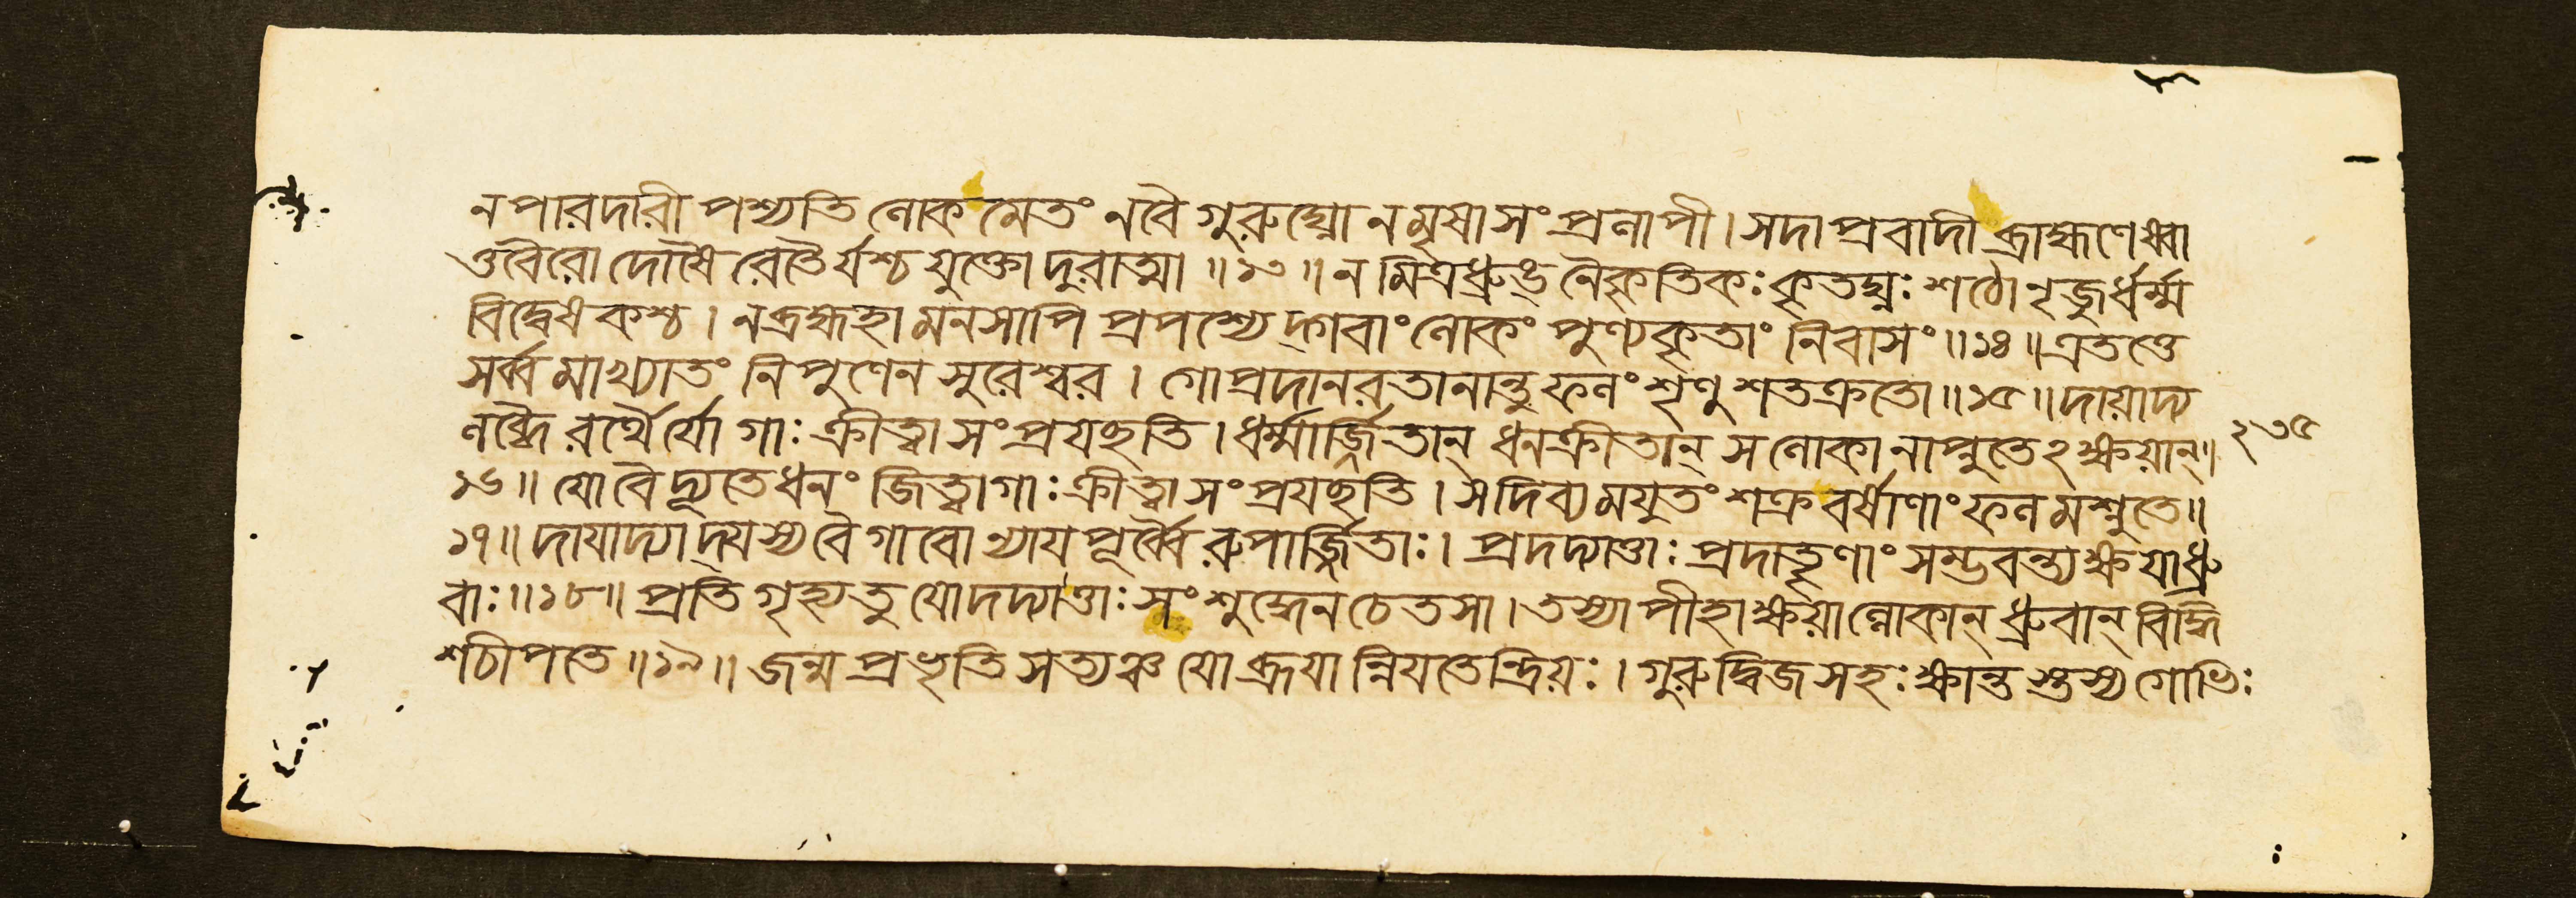 ন পারদারী পশ্যতি লোকমেতং নবৈ গুরুঘ্নো ন মৃষা সংপ্রলাপী । সদা প্রবাদী ব্রাহ্মণেষ্বা
ত্তবৈরো দোষৈরেতৈর্যশ্চ যুক্তো দুরাত্মা ॥ ১৩ ॥ ন মিত্রধ্রুঙ্ নৈকৃতিকঃ কৃতঘ্নঃ শঠোনৃজুর্ধর্ম্ম
বিদ্বেষকশ্চ । ন ব্রহ্মহা মনসাপি প্রপশ্যেদ্গবাং লোকং পুণ্যকৃতাং নিবাসং ॥ ১৪ ॥ এতত্তে
সর্ব্বমাখ্যাতং নিপুণেন সুরেশ্বর । গোপ্রদানরতানান্তু ফলং শৃণু শতক্রতো ॥ ১৫ ॥ দায়াদ্য
লব্ধৈরর্থৈর্যো গাঃ ক্রীত্বা সংপ্রযচ্ছতি । ধর্ম্মার্জ্জিতান্ ধনক্রীতান্ স লোকানাপ্নুতেঽক্ষয়ান্ ॥
১৬ ॥ যো বৈ দ্যূতে ধনং জিত্বা গাঃ ক্রীত্বা সংপ্রযচ্ছতি । স দিব্যমযুতং শক্র বর্ষাণাং ফলমশ্নুতে ॥
১৭ ॥ দাযাদ্যাদ্যস্য বৈ গাবো ন্যায পূর্ব্বৈরুপার্জ্জিতাঃ । প্রদদ্যাত্তাঃ প্রদাতৄণাং সম্ভবন্ত্যক্ষযা ধ্রু
বাঃ ॥ ১৮ ॥ প্রতিগৃহ্য তু যো দদ্যাত্তাঃ সংশুদ্ধেন চেতসা । তস্যাপীহাক্ষয়াল্লোকান্ ধ্রুবান্ বিদ্ধি
শচীপতে ॥ ১৯ ॥ জন্মপ্রভৃতি সত্যঞ্চ যো ব্রূযান্নিযতেন্দ্রিয়ঃ । গুরুদ্বিজসহঃ ক্ষান্তস্তস্য গোভিঃ
২৩৫